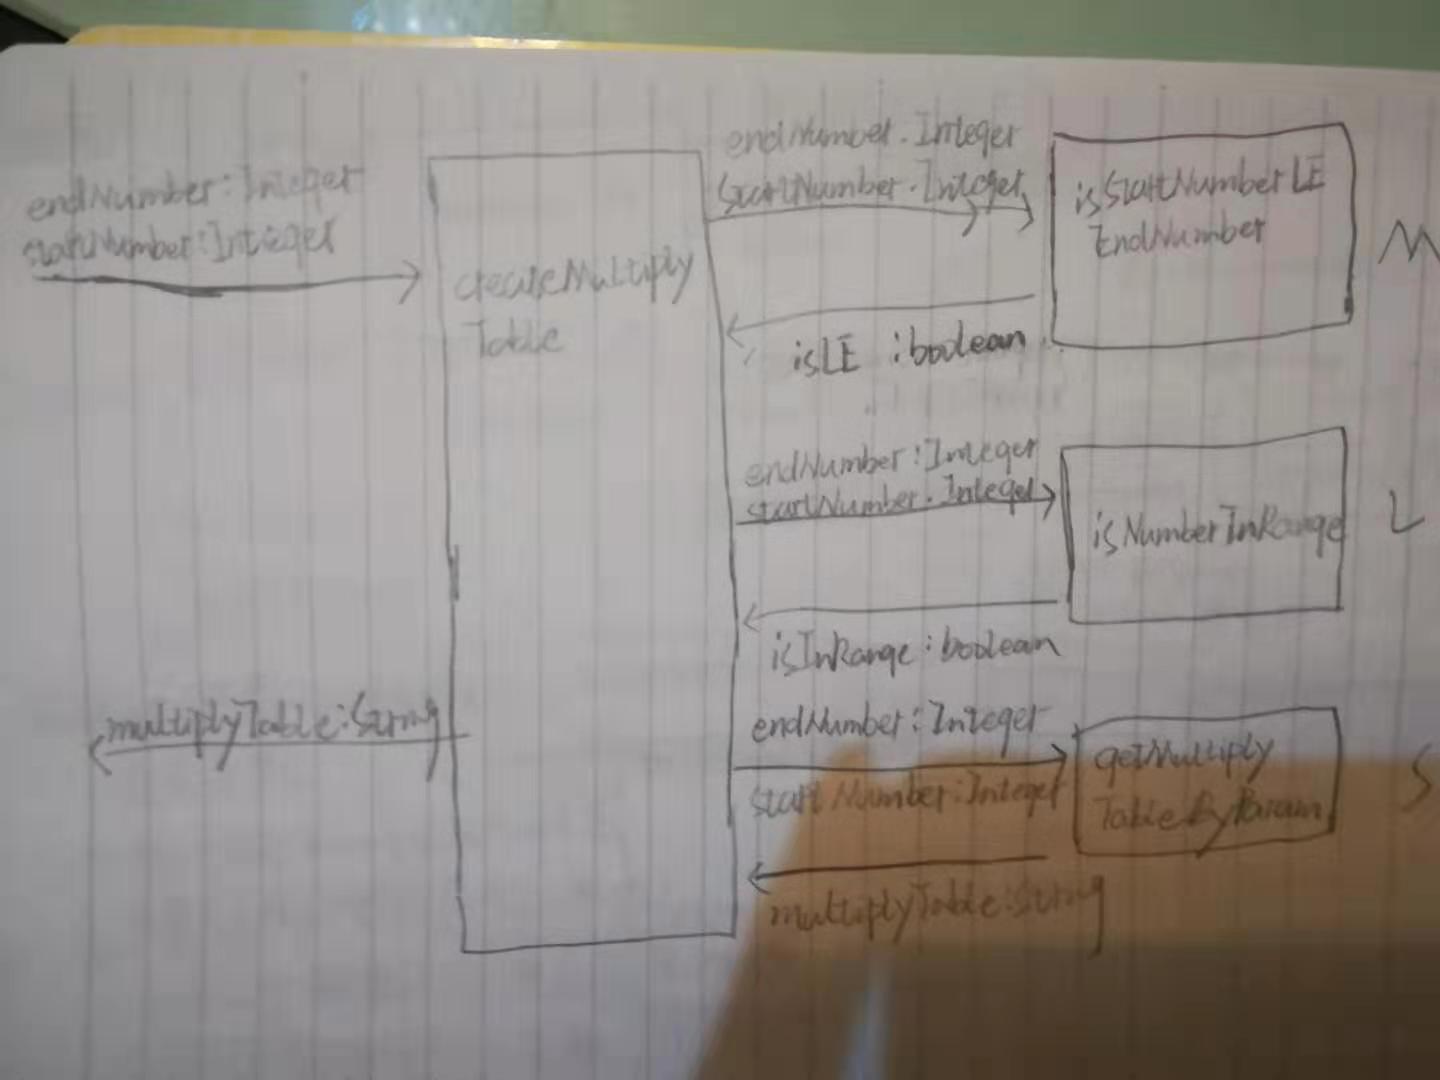 endNumber:Integer
startNumber:Integer
createMultiply
Table
multiplyTable:String
endNumber.Integer
startNumber.Integer
isStartNumberLE
EndNumber
M
isLE :boolean
endNumber:Integer
startNumber.Integer
isNumberInRange
L
isInRange:boolean
endNumber:Integer
startNumber:Integer
getMultiply
TableByParam
S
multiplyTable:String